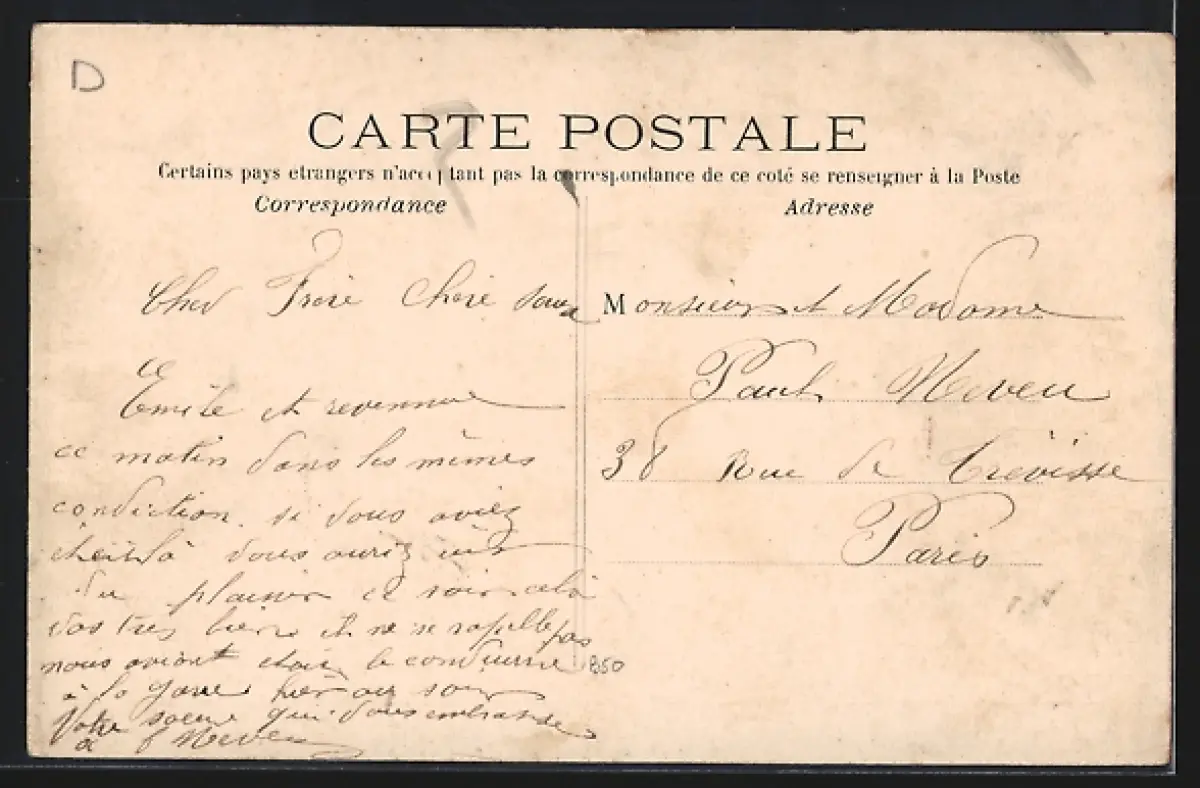 D
CARTE POSTALE
Certains pays etrangers n'acceptant pas la correspondance de ce coté se renseigner à la Poste
Correspondance
Adresse
Cher Frere Chere Soeur
Emile et revennue
ce matin dans les mêmes
condiction si vous aviez
vous auriez
du plaisir ce soir cela
vas tres bien il ne se rapelle pas
nous aviont etait le conduirre
à la gare hier au soir
Votre soeur qui vous embrasse
Neveu
Monsieur et Madame
Paul Neveu
38 Rue de Trévisse
Paris
B50